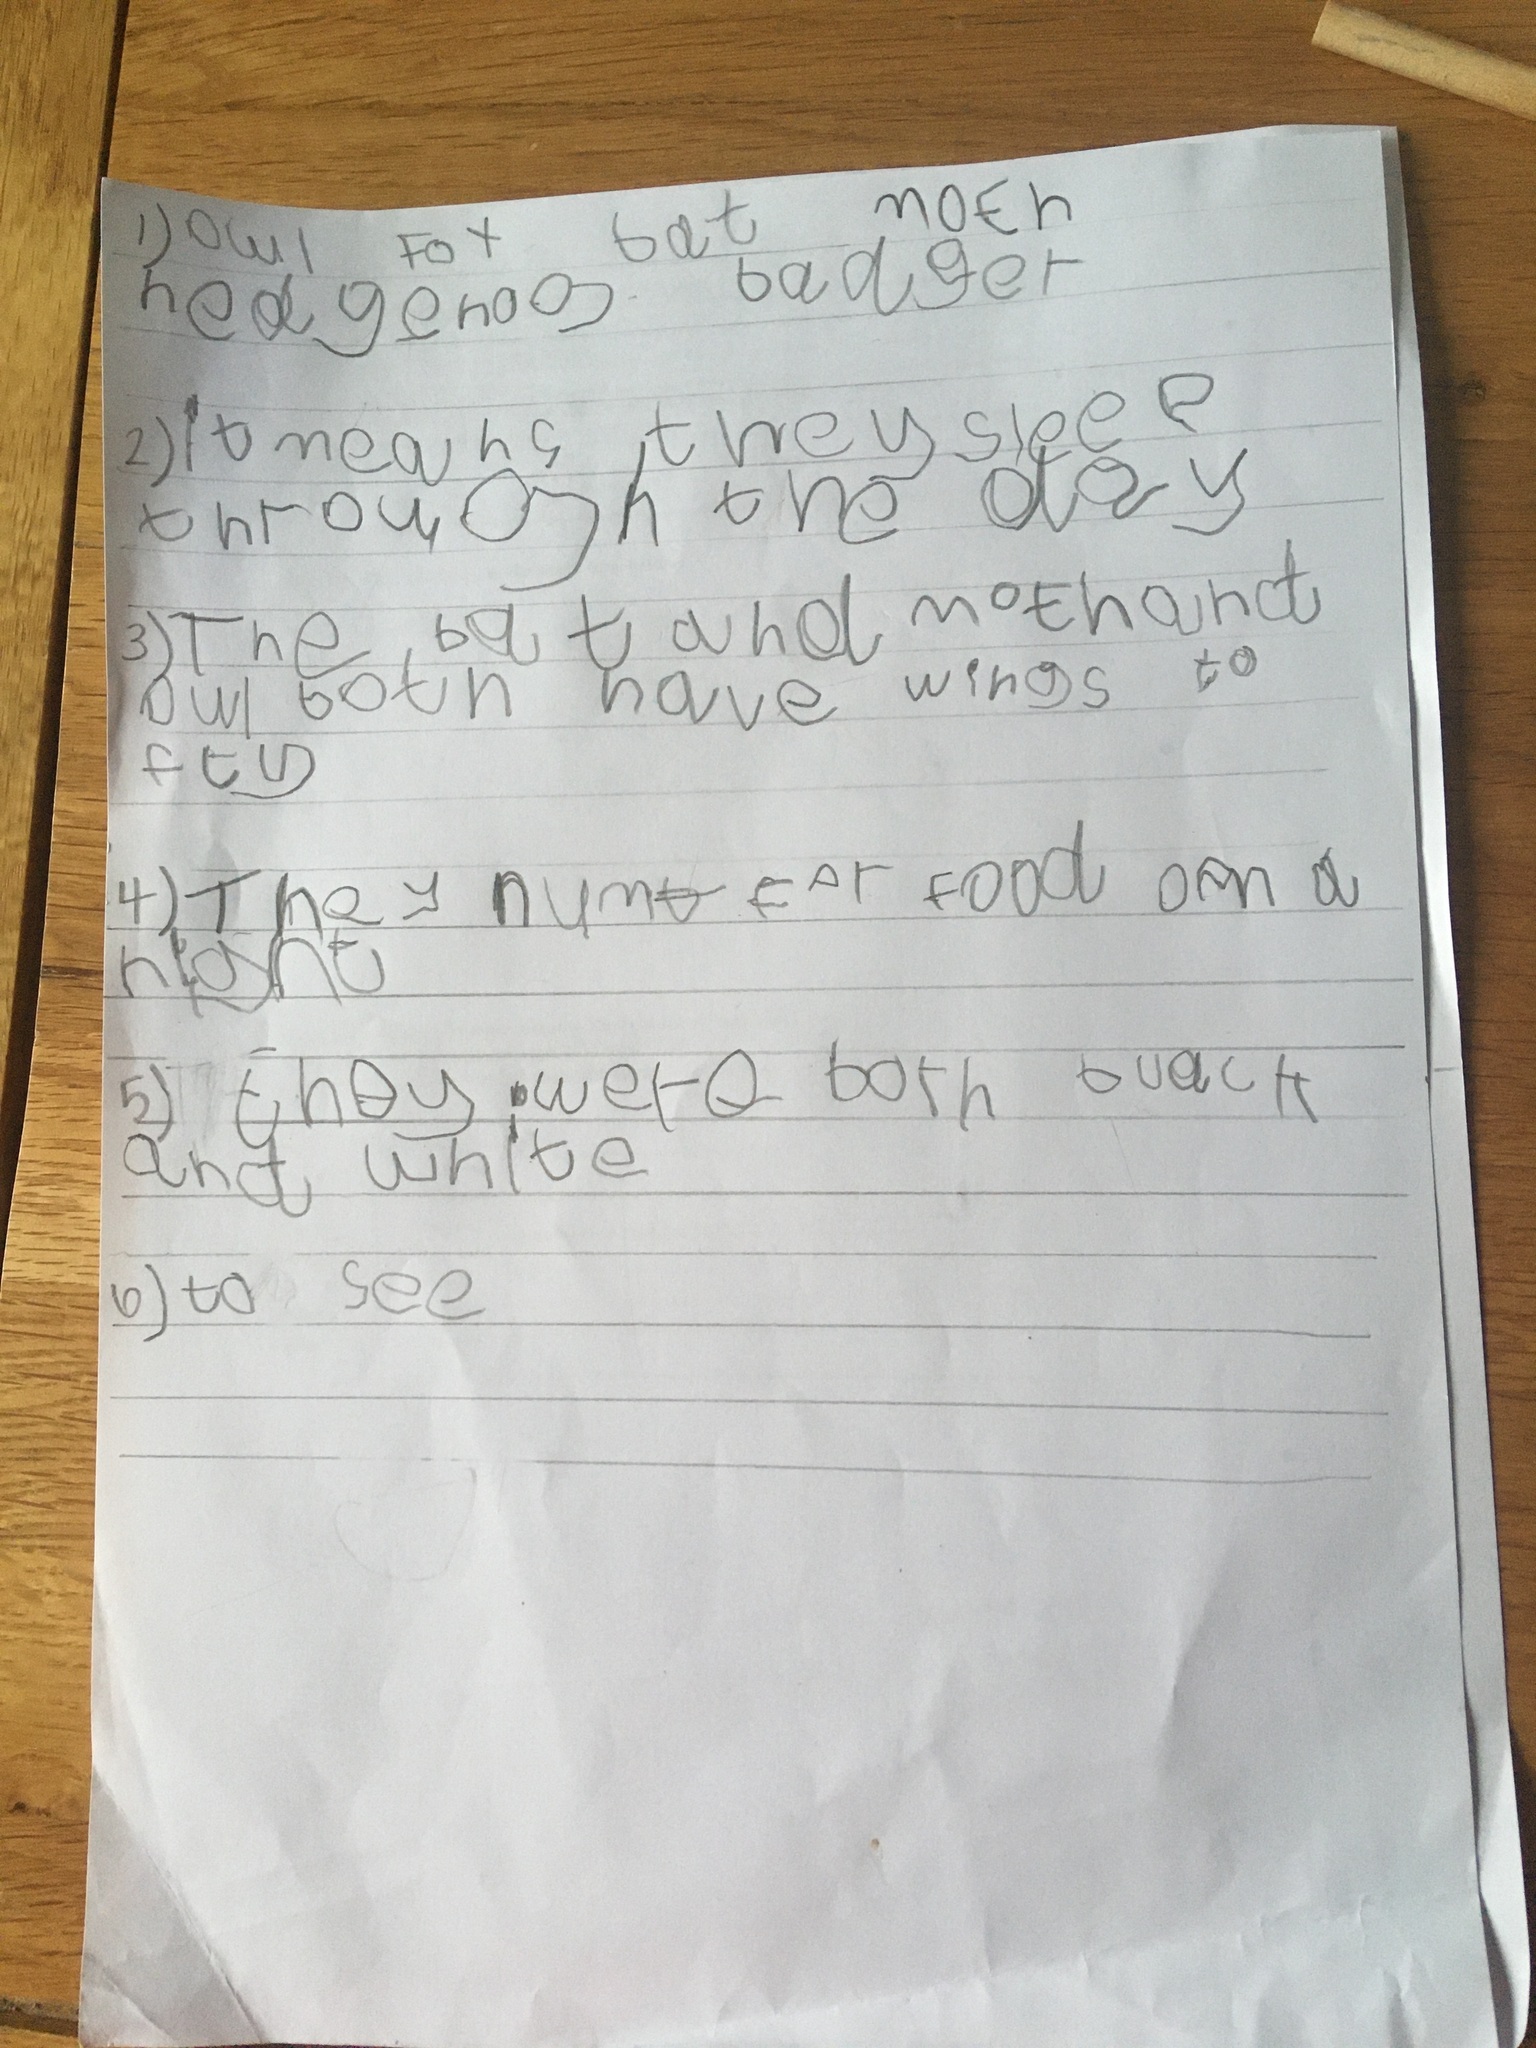 1) Owl fox bat moth
hedgehog badger
2) it means they sleep
through the day
3) The bat and moth and
owl both have wings to
fly
4) They hunt for food on a
night
5) they were both black
and white
6) to see